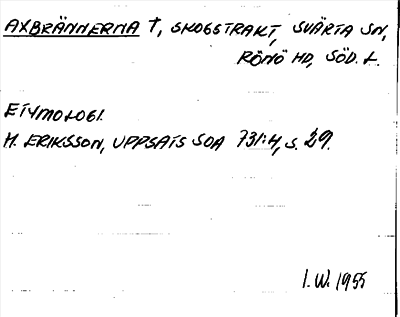 AXBRÄNNERNA †, SKOGSTRAKT, SVÄRTA SN,
RÖNÖ HD, SÖD. L.
ETYMOLOGI.
M. ERIKSSON, UPPSATS SOA 731:4, S. 29.
I.W. 1955